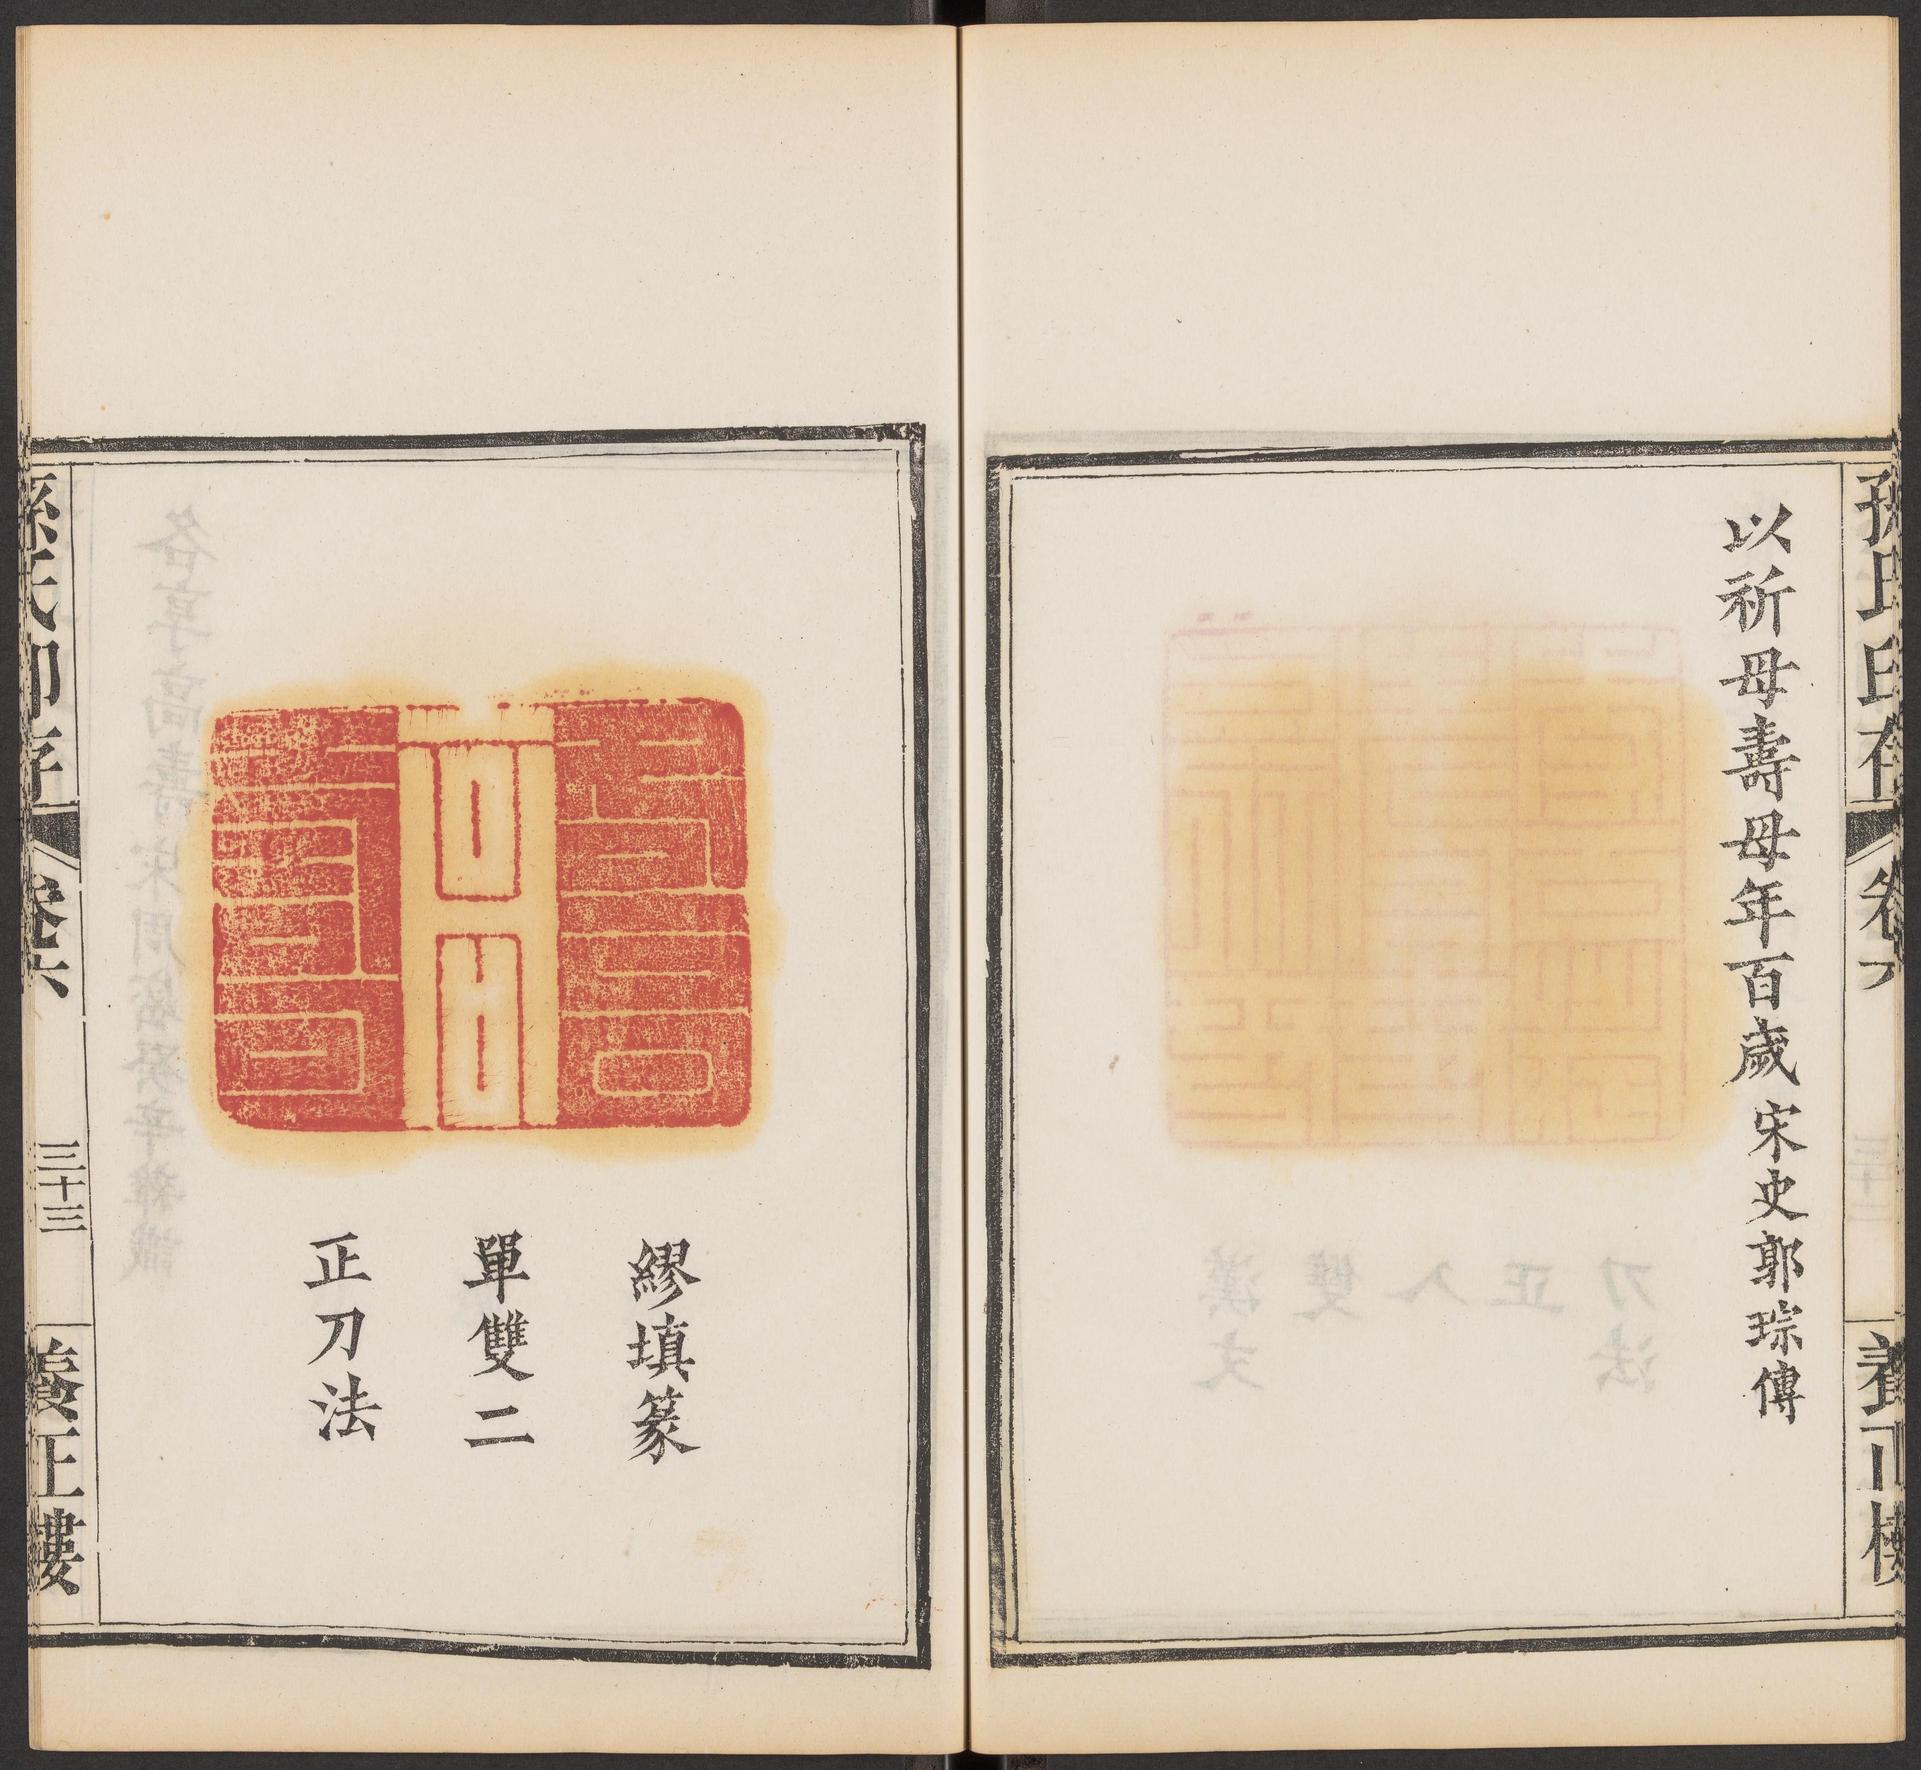 孫氏印存
卷六
養正樓
以祈母壽母年百歲 宋史郭琮傳
繆填篆
單雙二
正刀法
孫氏印存
卷六
三十三
養正樓